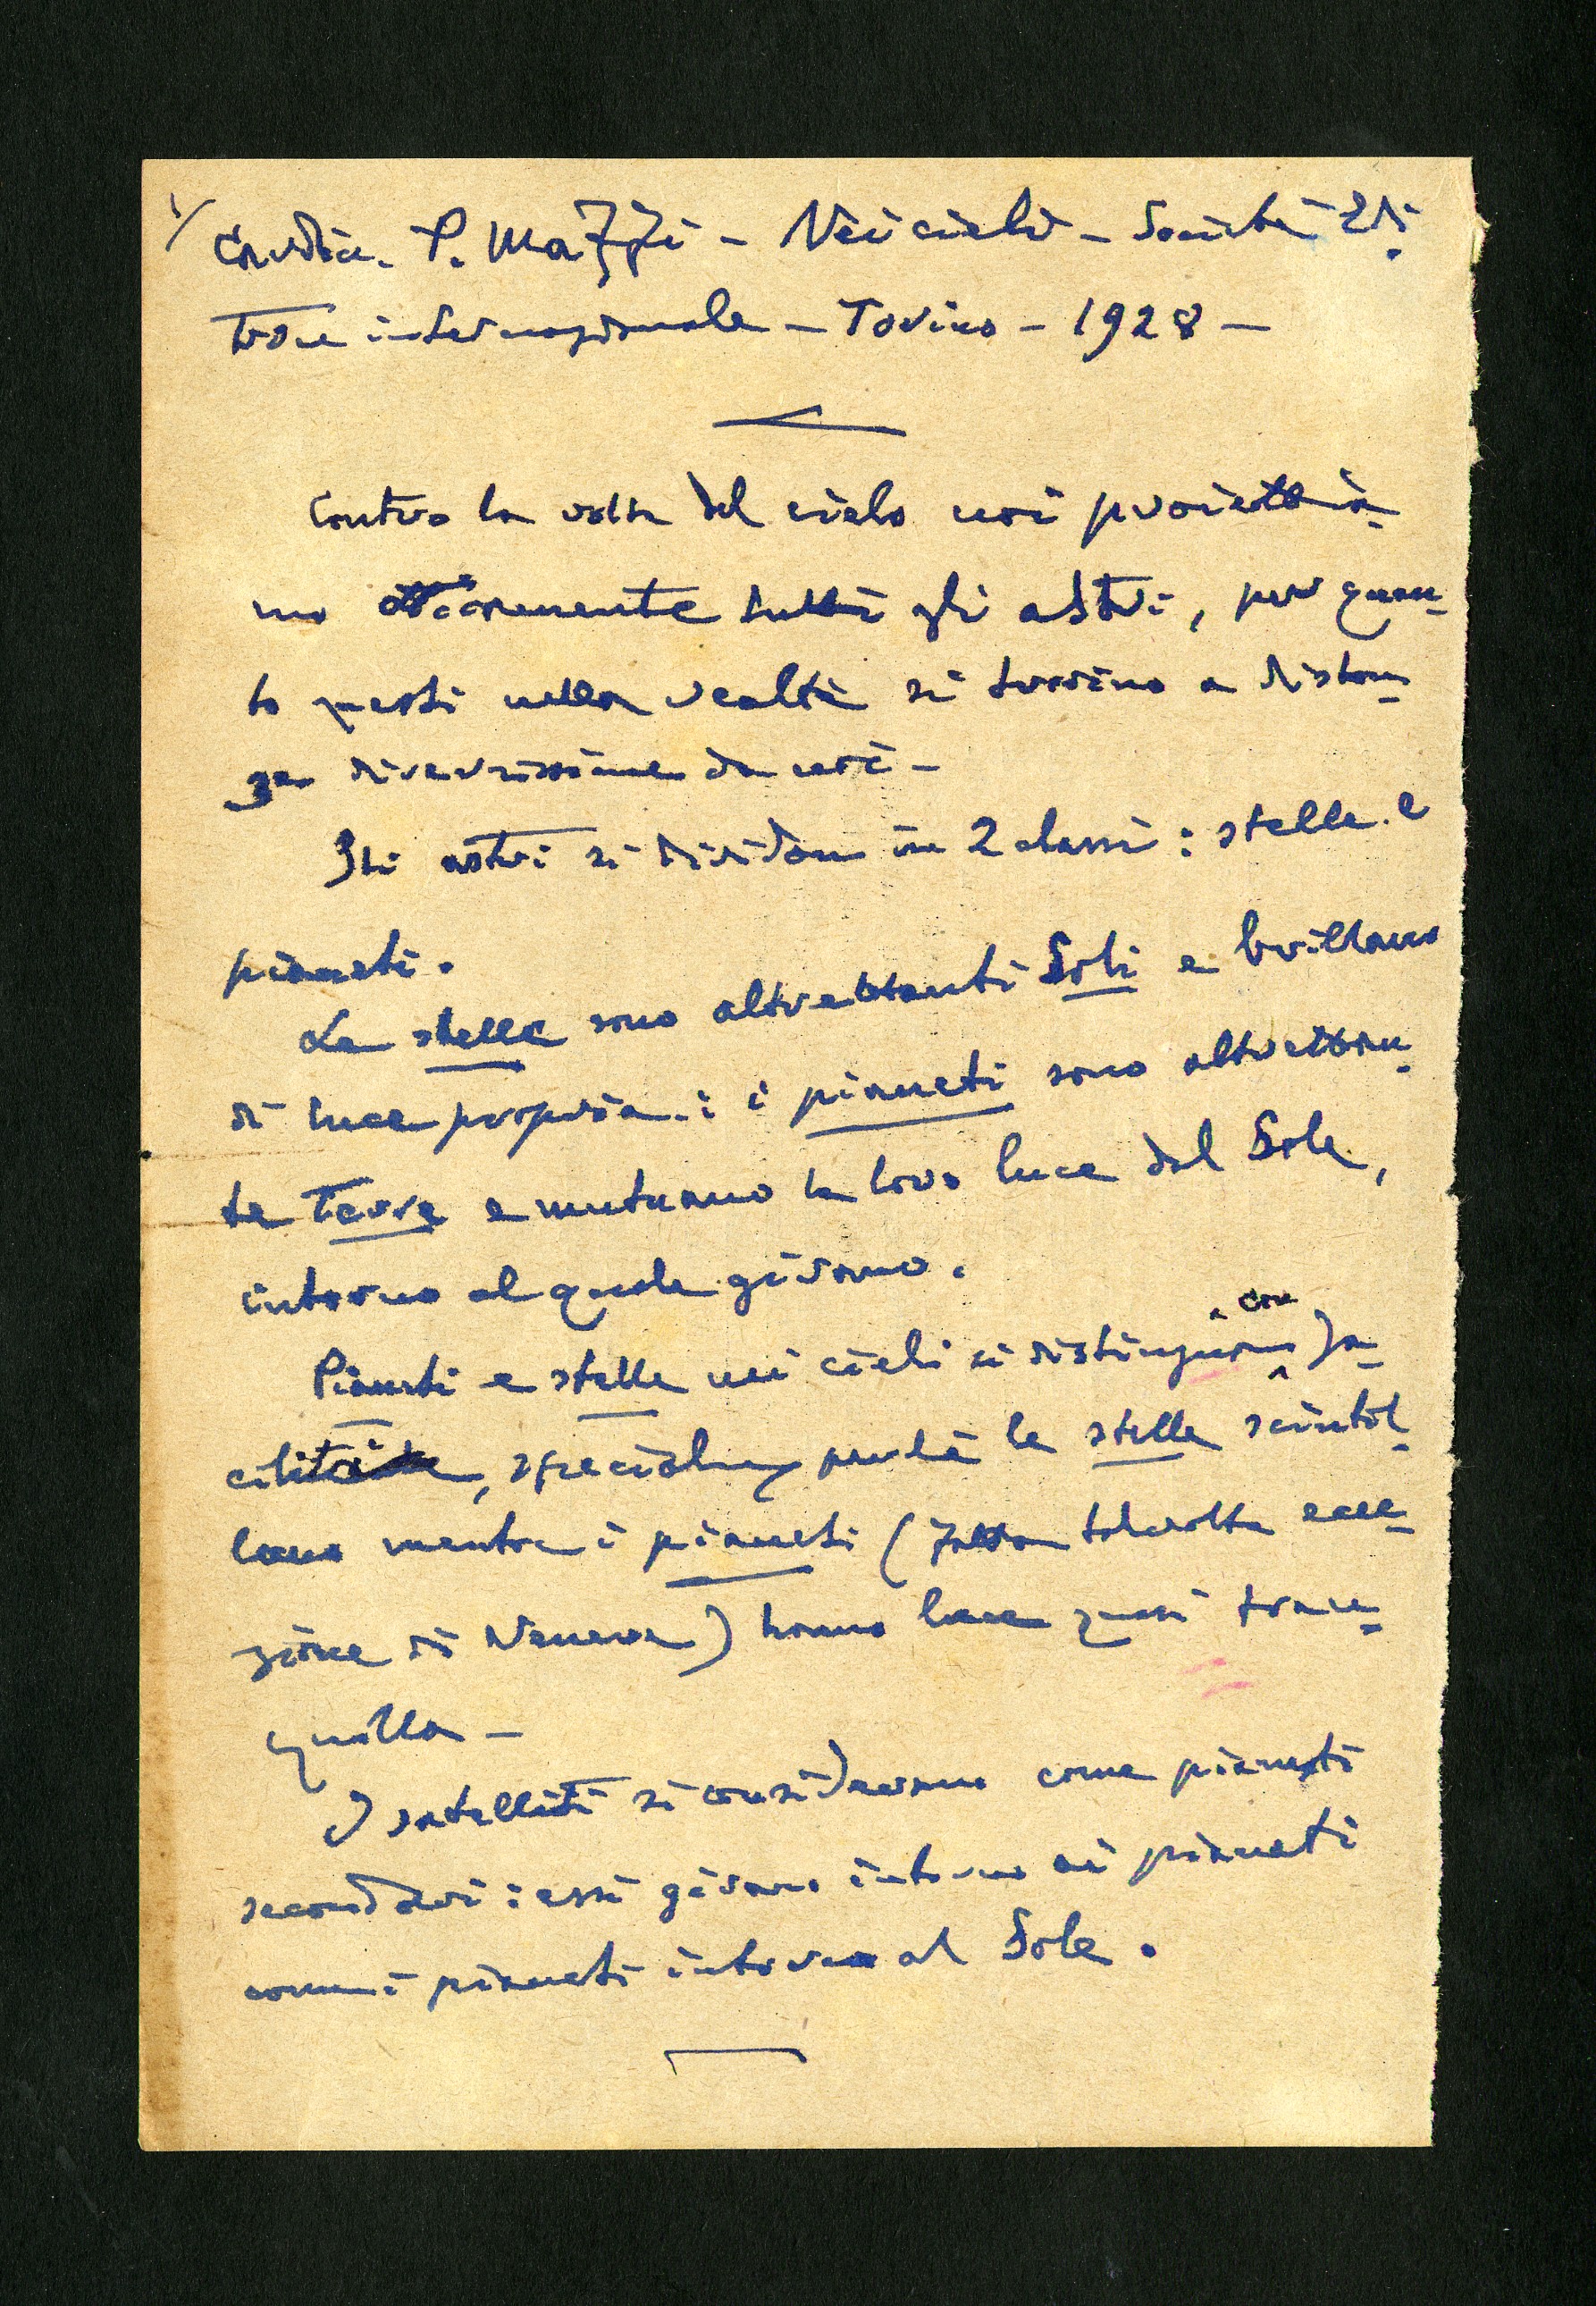 1/ Candia. P. Mazzi - Nei cieli - Società Edi
trice internazionale - Torino - 1928 -
Contro la volta del cielo noi proiettia-
mo otticamente tutti gli astri, per quan-
to questi nella realtà si trovino a distan-
ze diversissime da noi -
Gli astri si dividono in 2 classi: stelle e
pianeti.
Le stelle sono altrettanti Soli e brillano
di luce propria: i pianeti sono altrettan-
te Terre e mutuano la loro luce dal Sole,
intorno al quale girano.
Pianeti e stelle nei cieli si distinguono con fa-
cilità, specialm perché le stelle scintil-
lano mentre i pianeti (fatta talvolta ecce-
zione di Venere) hanno luce quasi tran-
quilla -
I satelliti si considerano come pianeti
secondari: essi girano intorno ai pianeti
come i pianeti intorno al Sole.